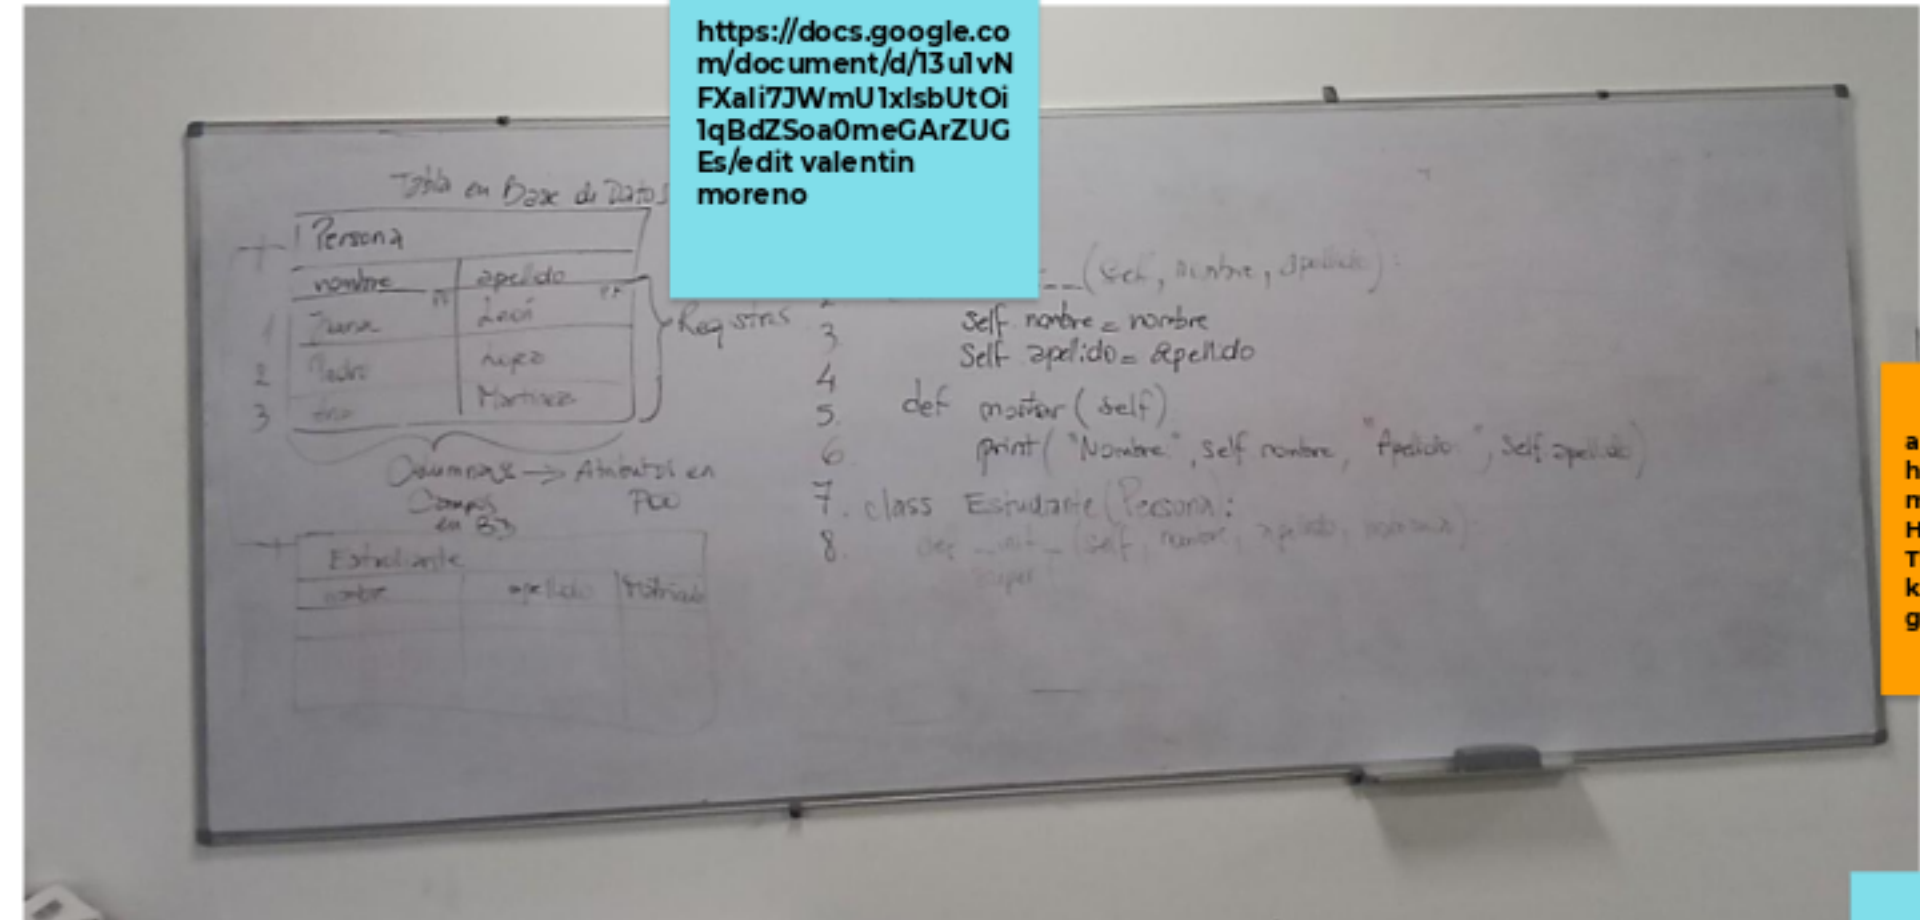 https://docs.google.co
m/document/d/13u1vN
FXali7JWmU1xlsbUtOi
1qBdZSoa0meGArZUG
Es/edit valentin
moreno
Tabla en Base de Datos
Persona
nombre apellido
1 Juana León
2 Pedro
3 Ana Martinez
Registros
Columnas → Atributos en
Campos POO
en BD
Estudiante
nombre apellido
__(self, nombre, apellido):
2
3 self nombre = nombre
Self apellido = apellido
4
5. def mostrar (self)
6 print( "Nombre", self nombre, "Apellido", self apellido)
7. class Estudiante (Persona):
8. def __init__ (self, nombre, apellido,
super
a
h
m
H
T
k
g